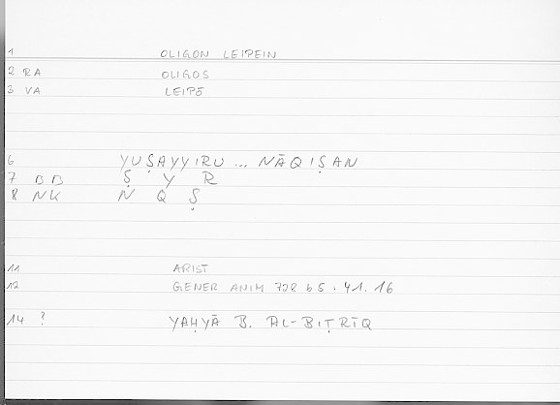 1 OLIGON LEIPEIN
2 RA OLIGOS
3 VA LEIPĒ
6 YUṢAYYIRU ... NĀQIṢAN
7 BB Ṣ Y R
8 NK N Q Ṣ
11 ARIST
12 GENER ANIM 728 b 5 : 41.16
14 ? YAḤYĀ B. AL-BIṬRĪQ